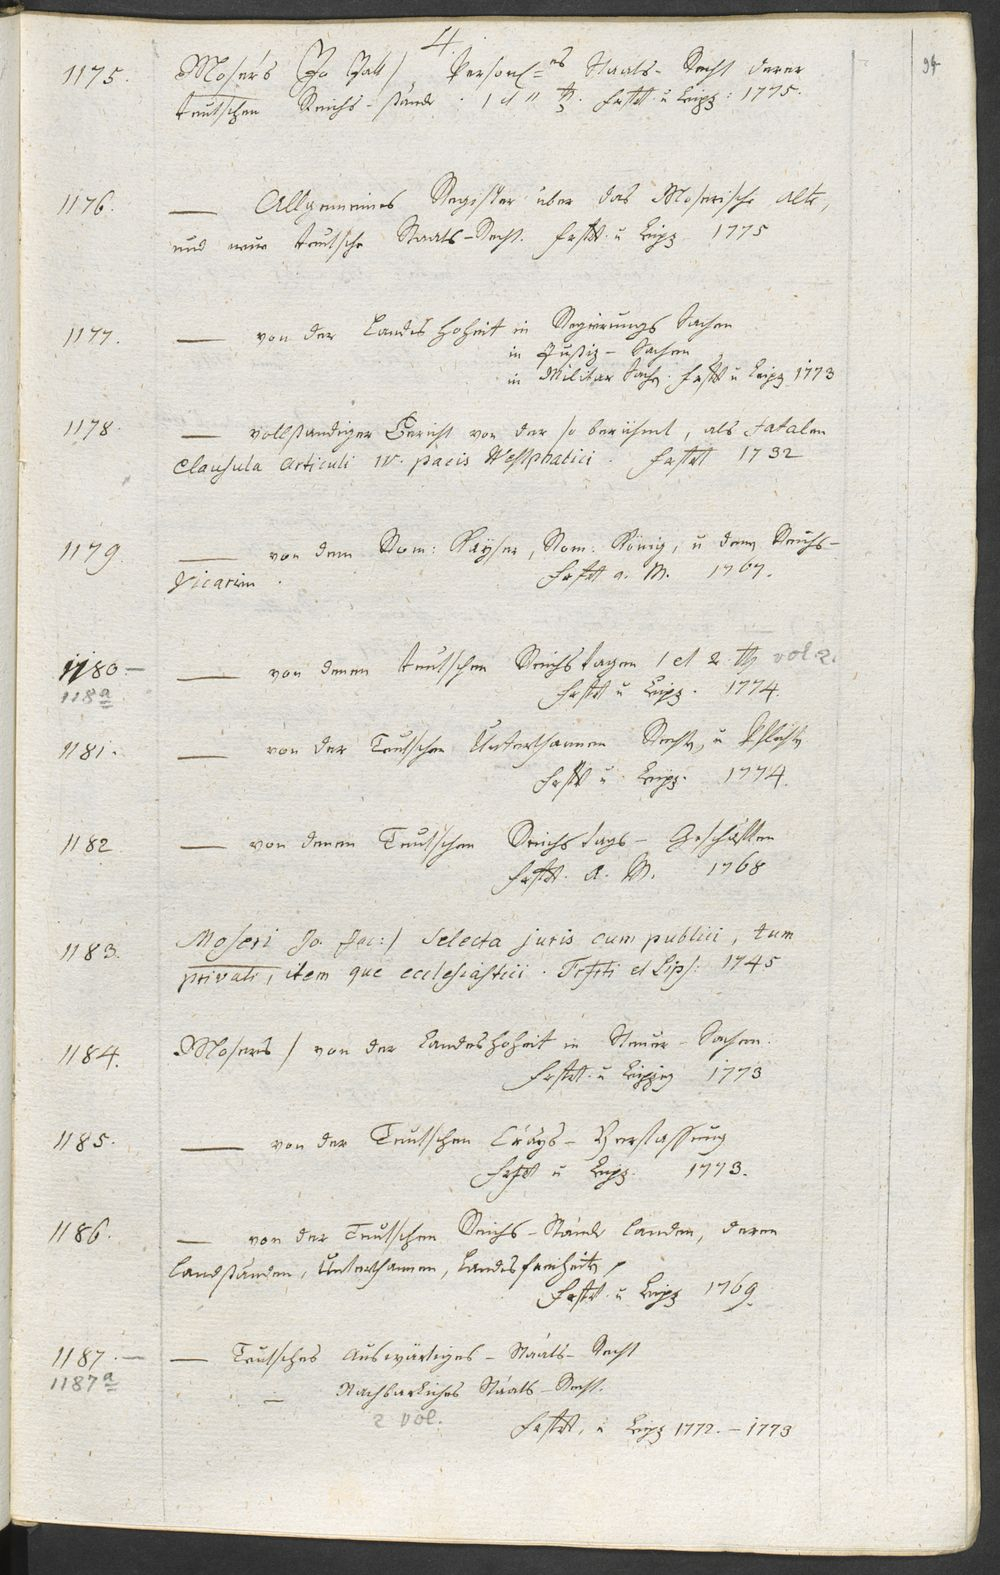 4.
94
1175. Mosers (Jo Jak) Persönl=es Staats-Recht derer
teutschen Reichs-stände. 1 et 11 Th. Frftt. u Leipz: 1775.
1176. — Allgemeines Register über das Moserische alte,
und neue teutsche Staats-Recht. Frftt. u Leipz 1775
1177. — von der Landes Hoheit in Regierungs Sachen
in Justiz-Sachen
in Militar Sach. Frftt u Leipz 1773
1178. — vollständiger Bericht von der so berühmt, als fatalen
Clausula Articuli IV. pacis Westphalici. Frftt 1732
1179. — von dem Röm: Kayser, Röm: König, u denen Reichs-
Vicarien. Frftt a. M. 1767.
1180 — — von denen teutschen Reichstagen 1 et 2 Th vol 2.
118a Frftt u Leipz. 1774.
1181. — von der Teutschen Unterthannen Rechte, u Pflichten
Frftt u Leipz. 1774.
1182 — von denen Teutschen Reichs tags-Geschäften
Frftt. a. M. 1768
1183. Moseri Jo. Jac:) Selecta juris cum publici, tum
privati, item que ecclesiastici. Frfrti et Lips: 1745
1184. Mosers) von der Landeshoheit in Steuer-Sachen.
Frftt. u Leipzig 1773
1185. — von der Teutschen Crays-Verfassung
Frftt u Leipz. 1773.
1186. — von der Teutschen Reichs-Stände Landen, deren
Landständen, Unterthannen, Landesfreiheiten,
Frftt. u Leipz 1769.
1187. — — Teutsches Auswärtiges-Staats-Recht
1187a — Nachbarliches Staats-Recht.
2 vol. Frftt. u Leipz 1772.-1773